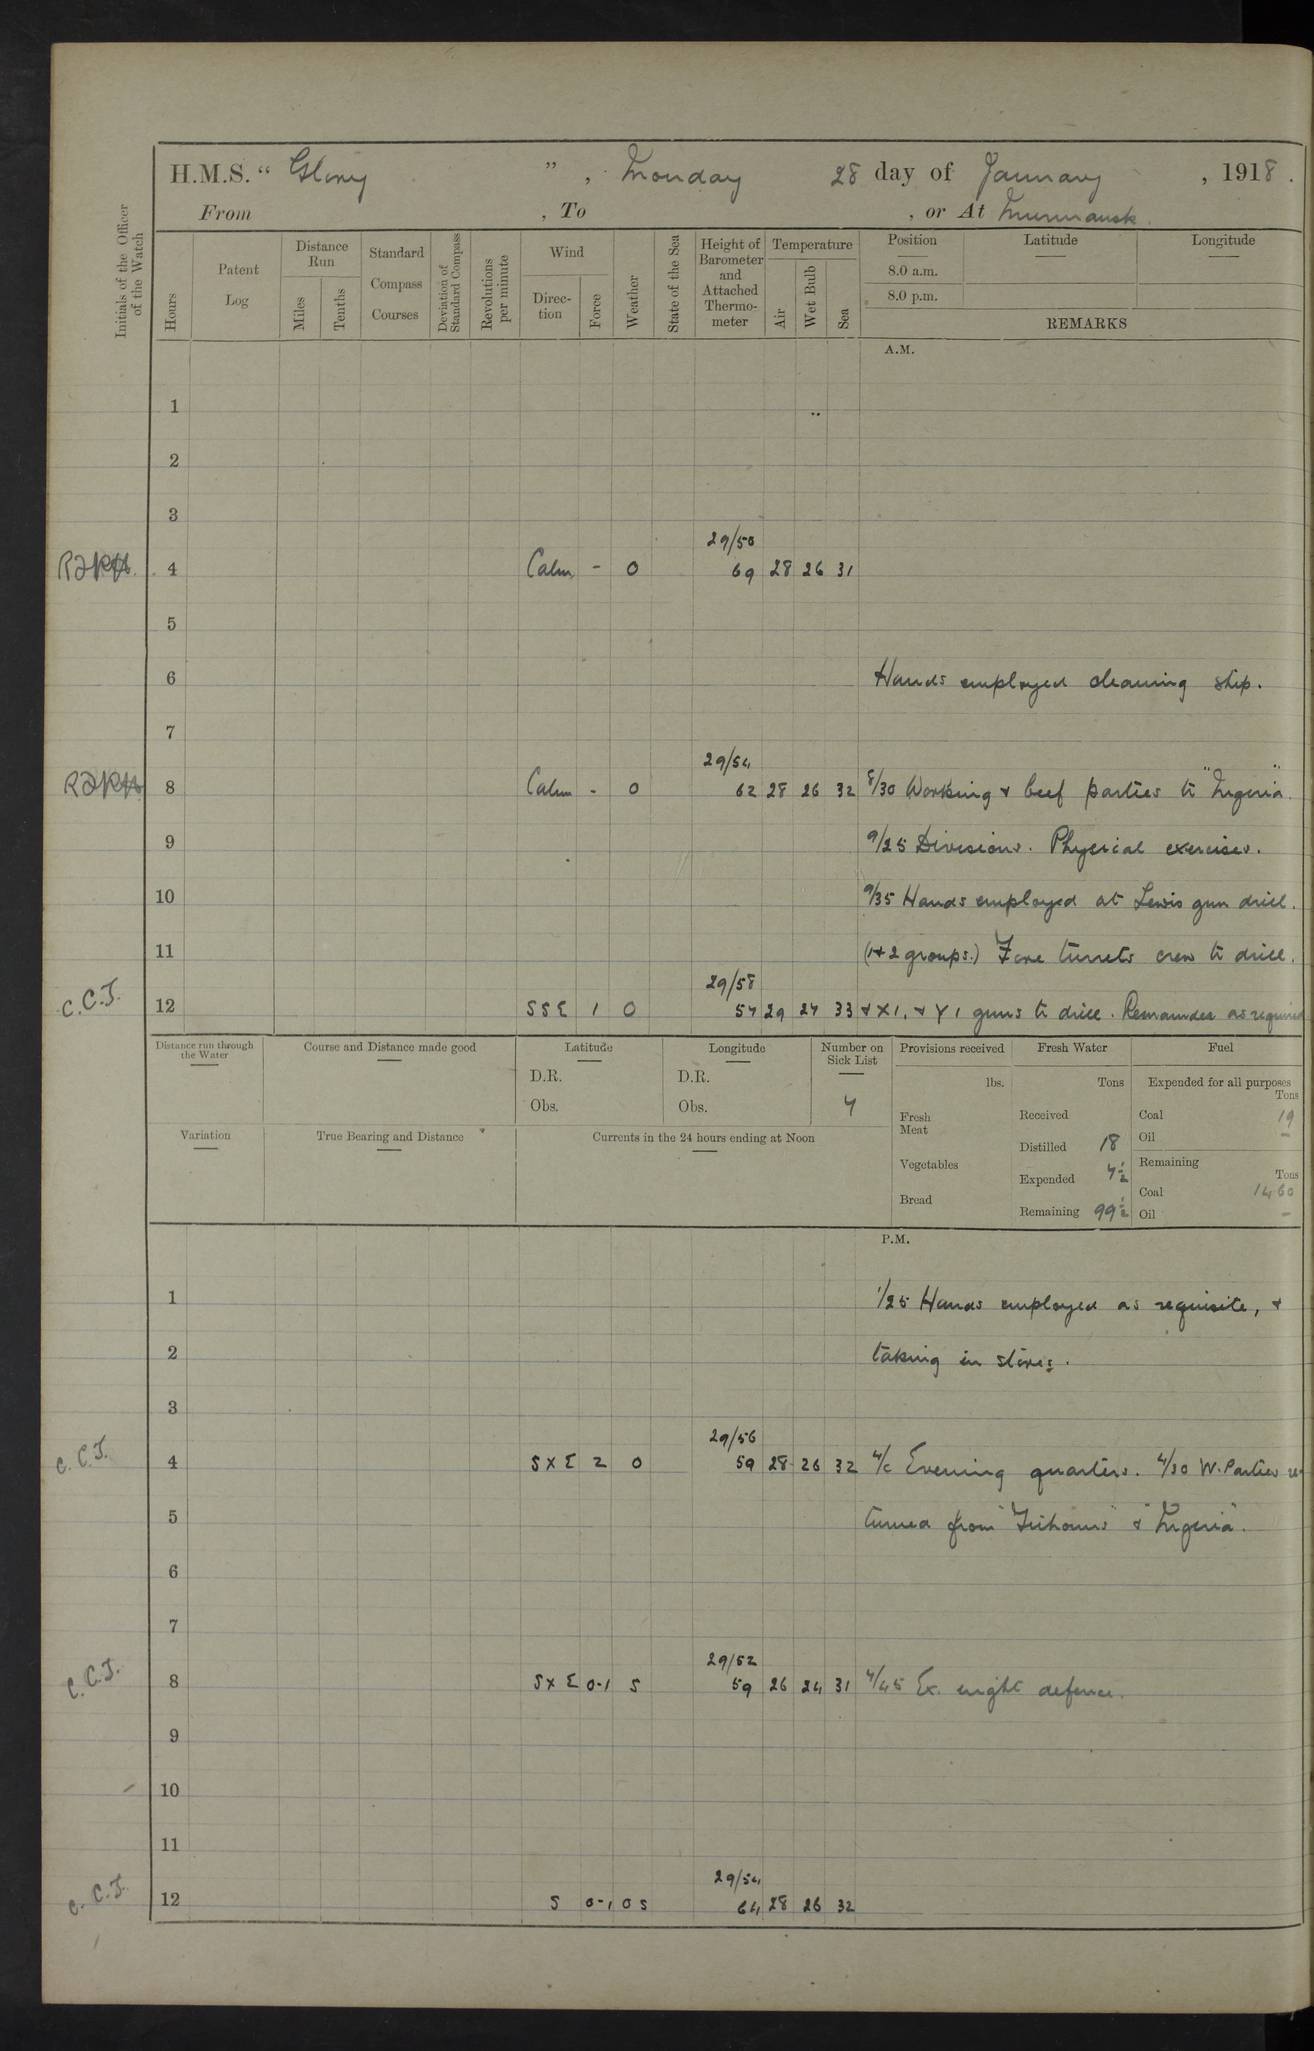 H.M.S. " Glory ", Monday 28 day of January, 1918.
From , To , or At Murmansk.
Initials of the Officer of the Watch
Hours
Patent Log
Distance Run
Miles
Tenths
Standard Compass Courses
Deviation of Standard Compass
Revolutions per minute
Wind
Direc-tion
Force
Weather
State of the Sea
Height of Barometer and Attached Thermo-meter
Temperature
Air
Wet Bulb
Sea
Position Latitude Longitude
8.0 a.m.
8.0 p.m.
REMARKS
A.M.
1
2
3
29/50
4 Calm - O 69 28 26 31
5
6 Hands employed cleaning ship.
7
29/54
8 Calm - O 62 28 26 32 8/30 Working & beef parties to "Nigeria".
9 9/25 Divisions. Physical exercises.
10 9/35 Hands employed at Lewis gun drill.
11 (1+2 groups.) Fore turrets crew to drill.
29/58
C.C.J. 12 SSE 1 O 57 29 27 33 & X1, & Y1 guns to drill. Remainder as required
Distance run through the Water
Course and Distance made good
Latitude
D.R.
Obs.
Longitude
D.R.
Obs.
Number on Sick List
7
Provisions received
lbs.
Fresh Meat
Vegetables
Bread
Fresh Water
Tons
Received
Distilled 18
Expended 7½
Remaining 99½
Fuel
Expended for all purposes
Tons
Coal 19
Oil -
Remaining
Tons
Coal 1460
Oil -
Variation
True Bearing and Distance
Currents in the 24 hours ending at Noon
P.M.
1 1/25 Hands employed as requisite, &
2 taking in stores.
3
29/56
C.C.J. 4 S x E 2 O 59 28 26 32 4/c Evening quarters. 4/30 W. Parties re-
5 turned from & "Nigeria".
6
7
29/52
C.C.J. 8 S x E 0-1 S 59 26 24 31 4/45 Ex. night defence.
9
10
11
29/54
C.C.J. 12 S 0-1 O S 64 28 26 32